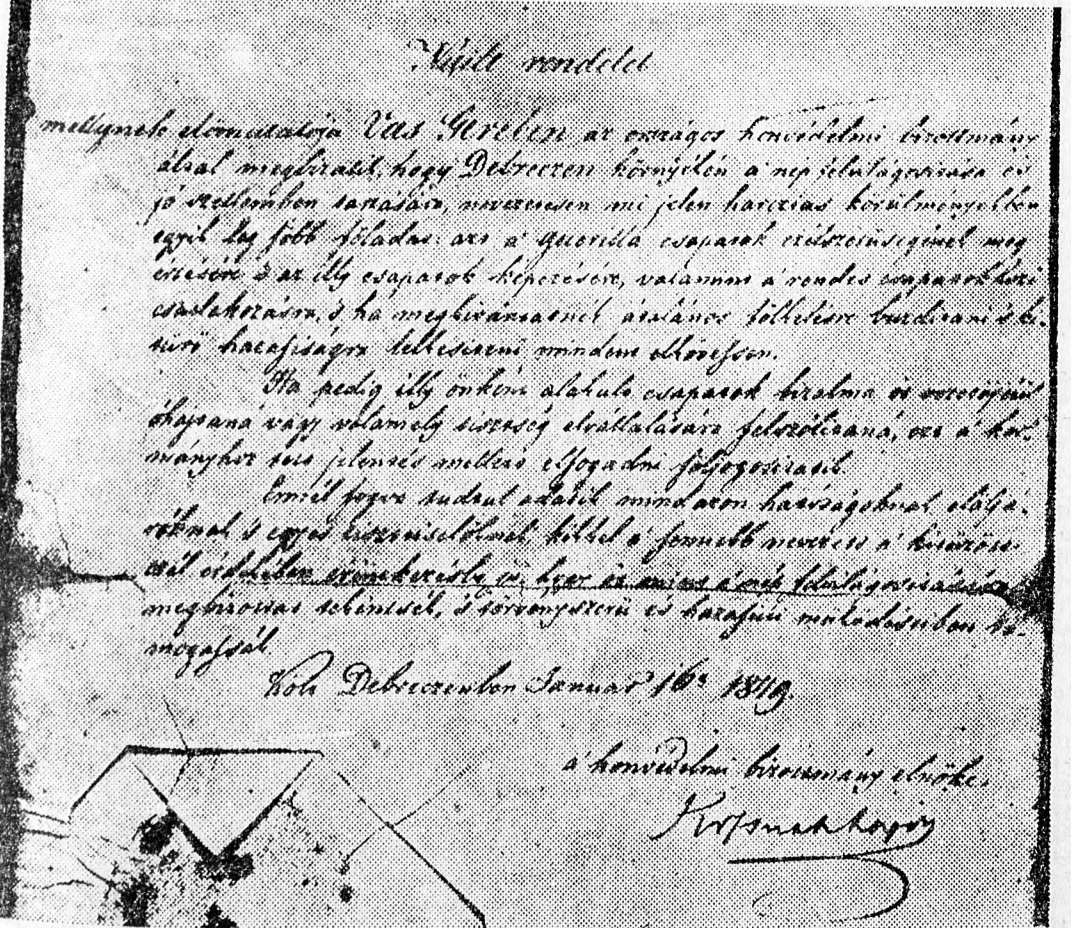 Nyilt rendelet
mellynek előmutatója Vas Gereben az országos honvédelmi bizottmány
által megbizatik, hogy Debreczen környékén a nép felvilágositása és
jó szellemben tartására, nevezetesen mi jelen harczias körülményekben
egyik leg főbb föladat: azt a guerilla csapatok czélszerüségének meg
értésére s az illy csapatok képezésére, valamint a rendes csapatok
csatlakozásra, s ha megkivántatnék általános fölkelésre buzditani s ki-
türő hazafiságra lelkesiteni mindent elkövessen.
Ha pedig illy önként alakuló csapatok bizalma őt vezetőjéül
óhajtaná vagy valamely tisztség elvállalására felszólitaná, ezt a kor-
mányhoz teendő jelentés mellett elfogadni följogosittatik.
Ennél fogva tudtul adatik mindazon hatóságoknak elöljá-
róknak s egyes tisztviselőknek, kikkel a fennebb nevezett a kitüzött
czél érdekében érintkezésbe jő, hogy őt mint a nép felvilágositására
megbizottat tekintsék, s törvényszerü és hazafiui müködésében tá-
mogassák.
Kelt Debreczenben Január 16n 1849.
a honvédelmi bizottmány elnöke.
Kossuth Lajos